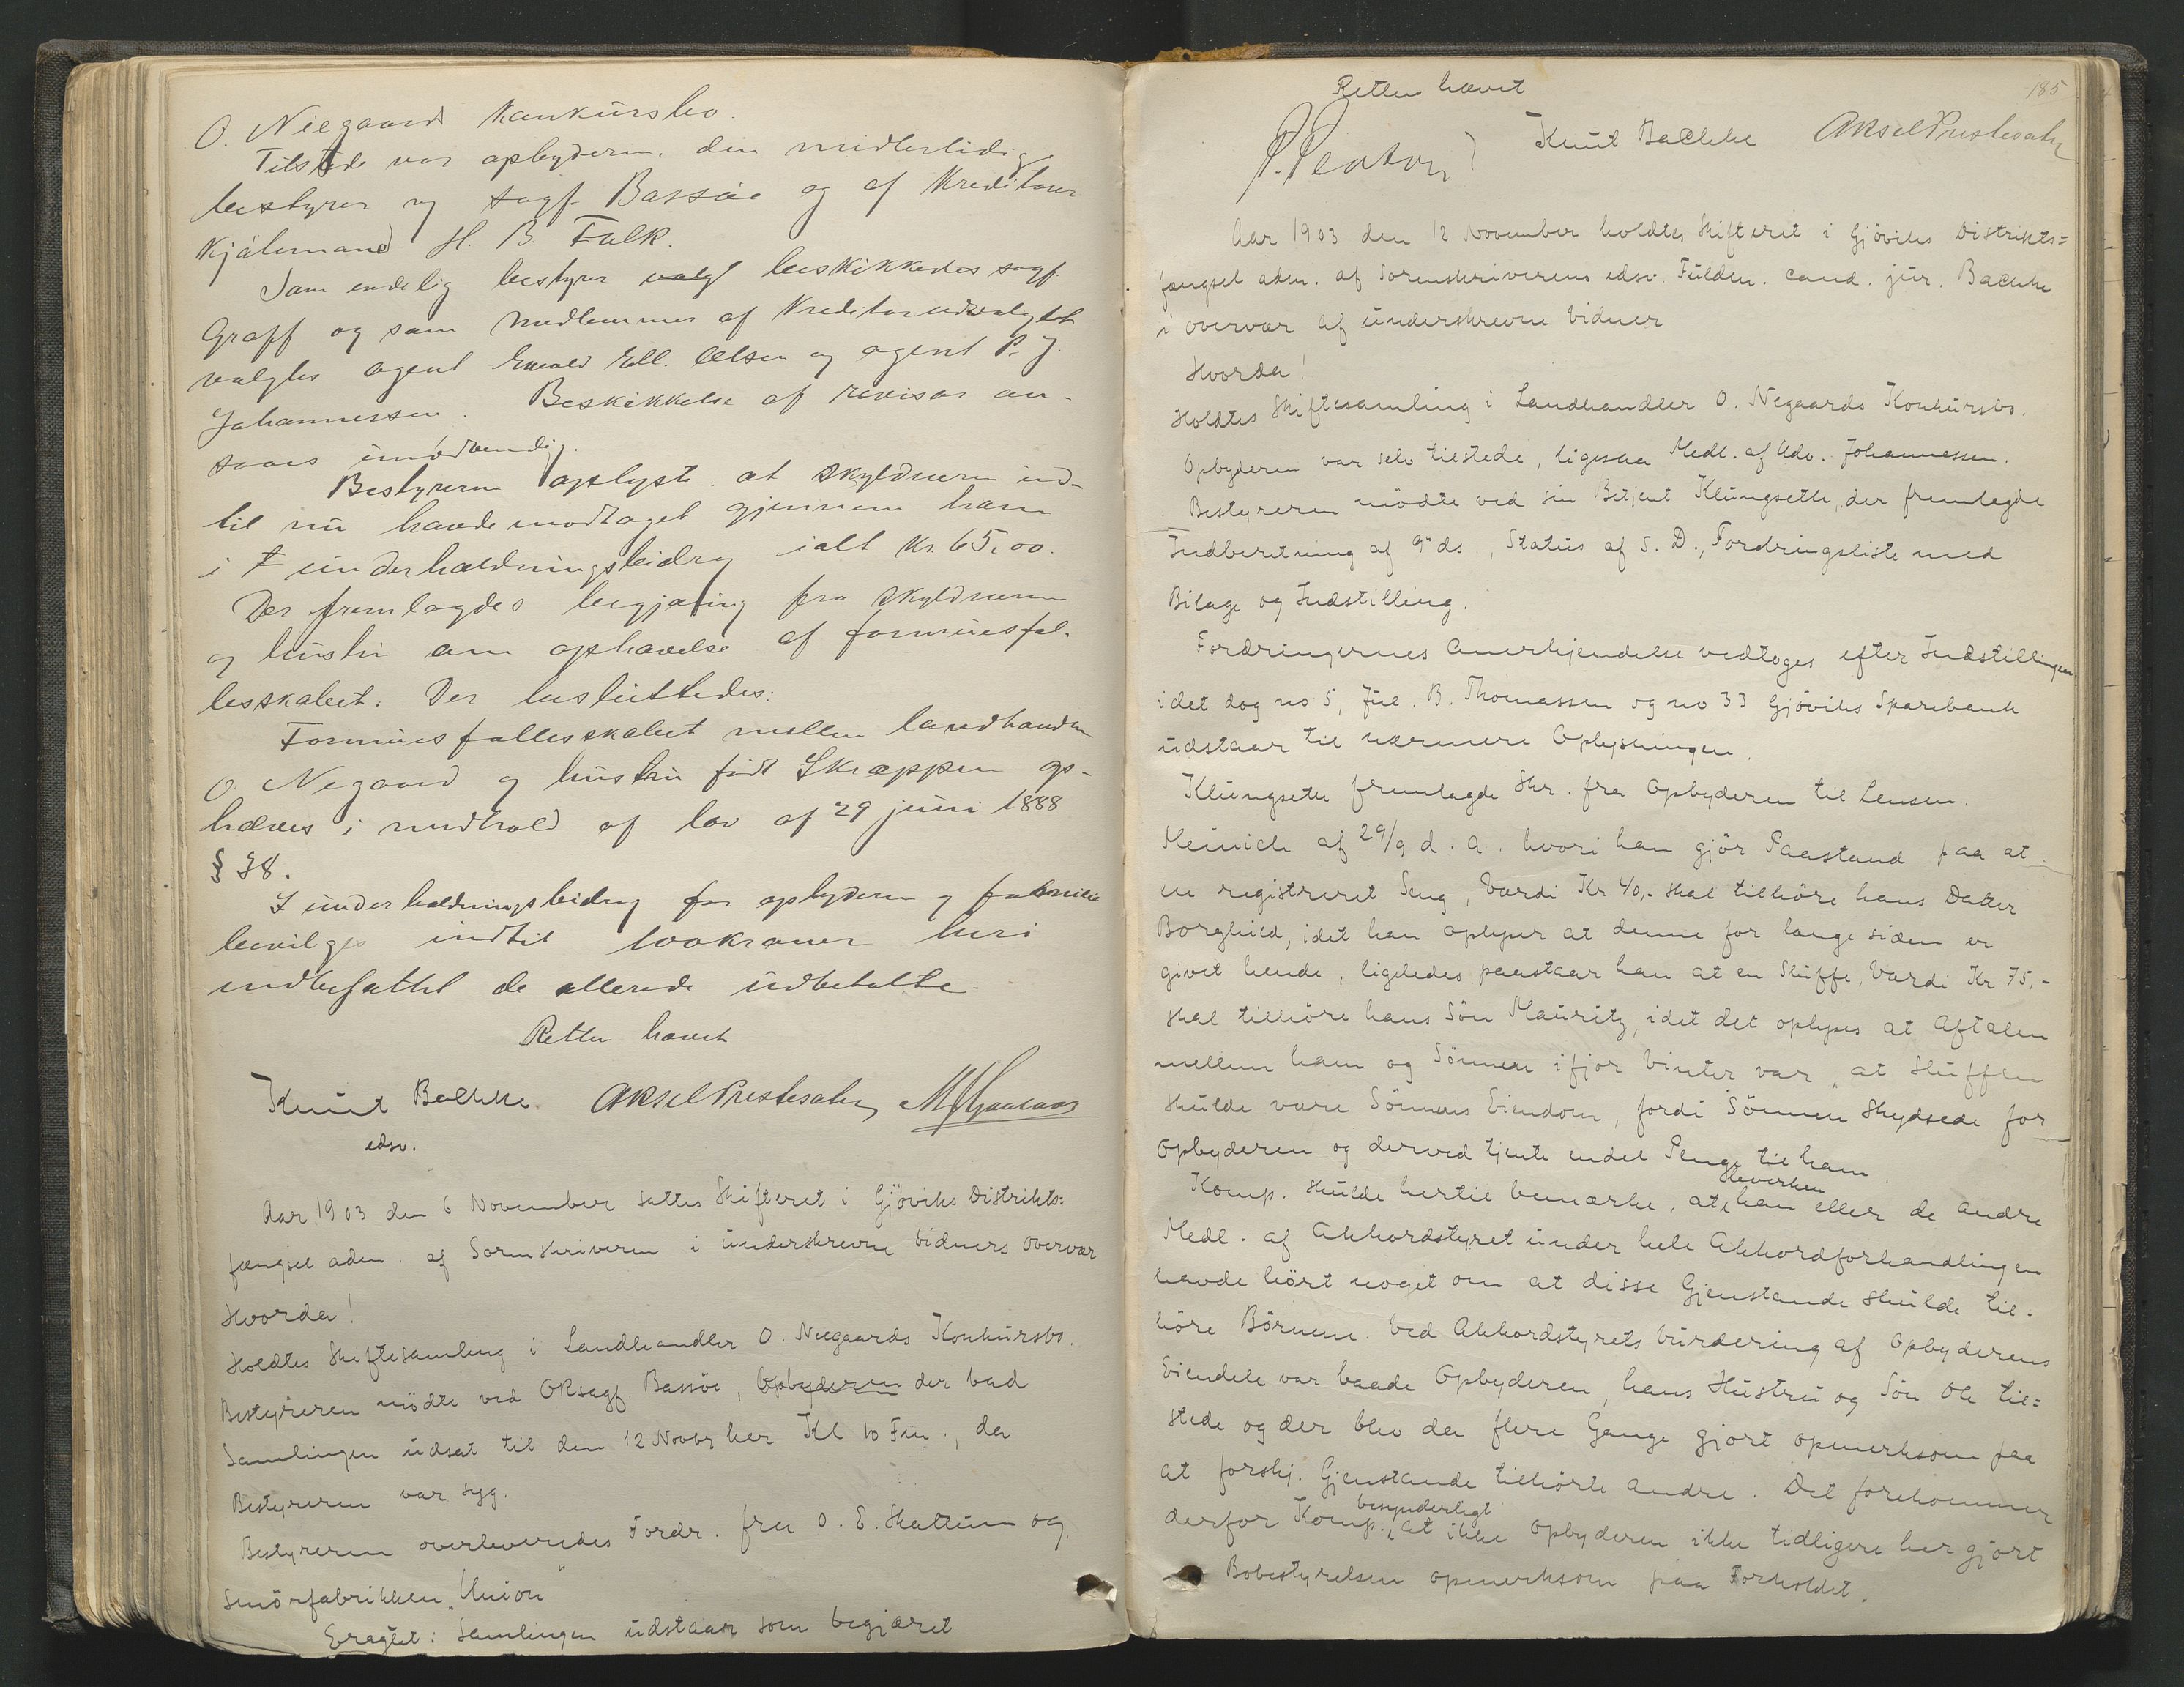 O. Niegaards Konkursbo.
Tilstede var opbyderen, den midlertidige
bestyrer og sagf. Bassøe og af Kreditorer
Kjøbmand H. B. Falk.
Som endelig bestyrer valgt beskikkedes sagf.
Graff og som medlemmer af Kreditorudvalget
valgtes agent Ewald Ell. Olsen og agent P. J.
Johannessen. Beskikkelse af revisor an-
saaes unødvendig.
Bestyreren oplyste at skyldneren ind-
til nu havde modtaget gjennem ham
i underholdningsbidrag ialt Kr. 65,00.
Der fremlagdes begjæring fra skyldneren
og hustru om ophævelse af formuesfæl-
lesskabet. Der besluttedes:
Formuesfællesskabet mellem landhandler
O. Negaard og hustru født Skræppen op-
hæves i medhold af lov af 29 juni 1888
§ 38.
I underholdningsbidrag for opbyderen og familie
bevilges indtil 100 kroner heri
indbefattet de allerede udbetalte.
Retten hævet
Knut Bachke. Aksel Prestesæter
edsv.
Aar 1903 den 6 November sattes Skifteret i Gjøviks Distrikts=
fængsel adm. af Sorenskriveren i underskrevne vidners overvær
Hvorda!
Holdtes Skiftesamling i Landhandler O. Neegaards Konkursbo.
Bestyreren mødte ved ORsagf. Bassøe, Opbyderen der bad
Samlingen udsat til den 12 Novbr her Kl 10 Fm., da
Bestyreren var syg.
Bestyreren overleveredes Fordr. fra O. E. Skattum og
Smörfabrikken "Union"
Eragtet: Samlingen udstaar som begjæret
185
Retten hævet
Knut Bachke Aksel Prestesæter
Aar 1903 den 12 November holdtes Skifteret i Gjöviks Distrikts=
fængsel adm. af Sorenskriverens edsv. Fuldm. cand. jur. Bachke
i overvær af underskrevne Vidner
Hvorda!
Holdtes Skiftesamling i Landhandler O. Negaards Konkursbo.
Opbyderen var selv tilstede, ligesaa Medl. af Udv. Johannessen.
Bestyreren mödte ved sin Betjent Klungseth, der fremlagde
Indberetning af 9de ds., Status af S. D., Fordringsliste med
Bilage og Indstilling.
Fordringernes Anerkjendelse vedtoges efter Indstillingen
idet dog no 5, Jul. B. Thomassen og no 33 Gjöviks Sparebank
udstaar til nærmere Oplysninger.
Klungseth fremlagde Skr. fra Opbyderen til Lensm.
Heinich af 29/9 d. A. hvori han gjör Paastand paa at
en registreret Seng, Værdi Kr 40,- skal tilhöre hans Datter
Borghild, idet han oplyser at denne for længe siden er
givet hende, ligeledes paastaar han at en Sluffe, Værdi Kr 75,-
skal tilhöre hans Sön Mauritz, idet det oplyses at Aftalen
mellem ham og Sönnen ifjor Vinter var, at Sluffen
skulde være Sönnens Eiendom, fordi Sönnen Skydsede for
Opbyderen og derved tjente endel Penge til ham.
Komp. skulde hertil bemærke, at hverken han eller de andre
Medl. af Akkordstyret under hele Akkordforhandlingen
havde hört noget om at disse Gjenstande skulde til-
höre Börnene. Ved Akkordstyrets Vurdering af Opbyderens
Eiendele var baade Opbyderen, hans Hustru og Sön Ole til=
stede og der blev da flere Gange gjort opmerksom paa
at forskj. Gjenstande tilhörte andre. Det forekommer
derfor Komp. besynderligt at ikke Opbyderen ikke tidligere har gjort
Bobestyrelsen opmerksom paa Forholdet.